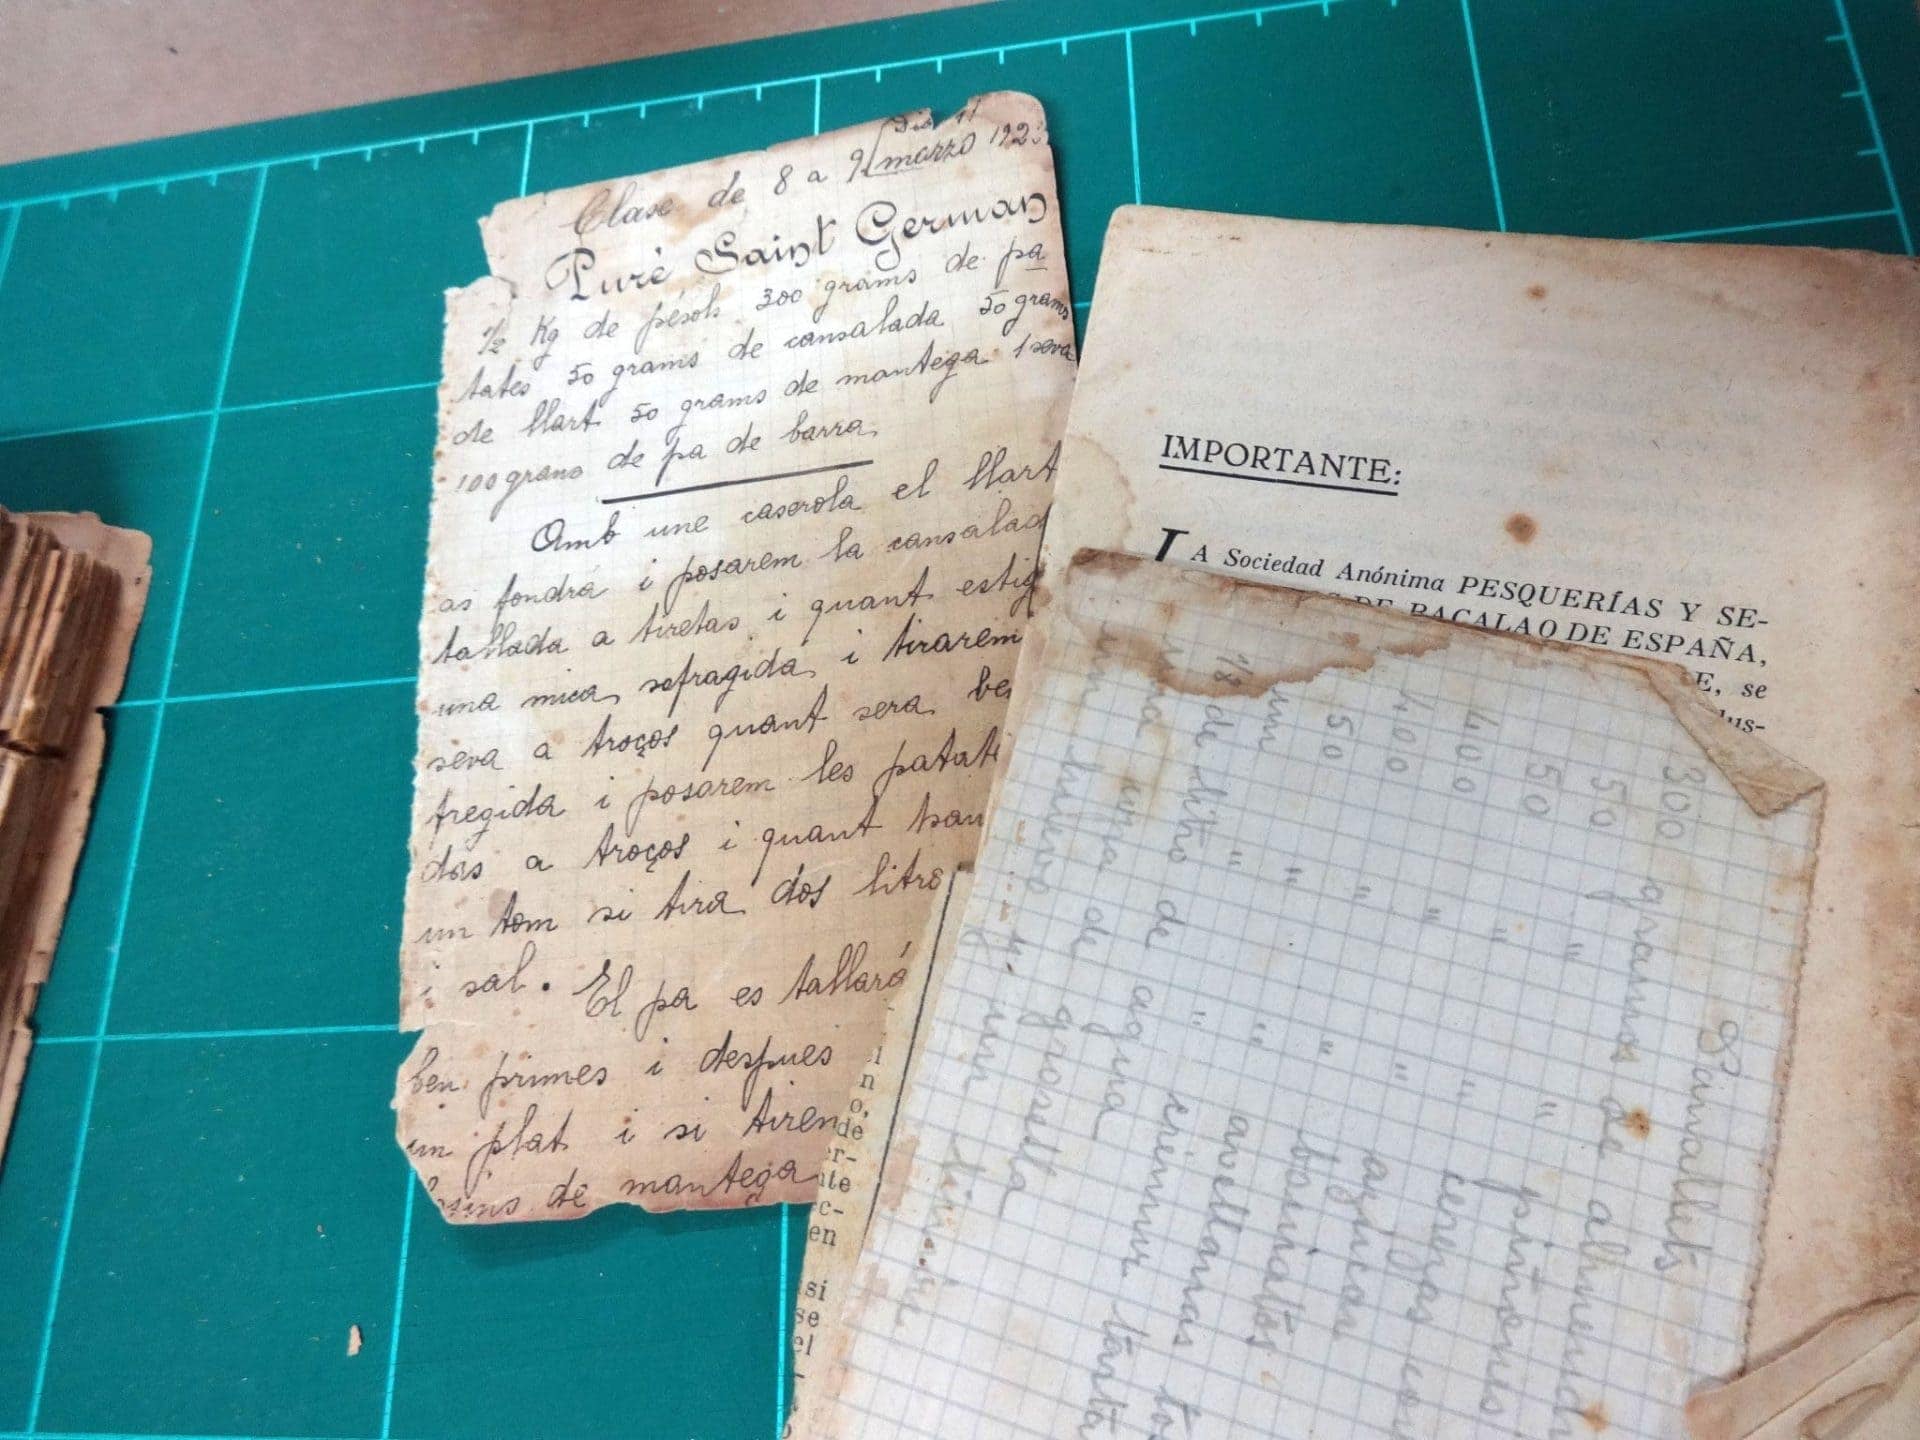 Dia 11
Clase de 8 a 9 marzo 192
Puré Saint German
1/2 Kg de pésols 300 grams de pa
tates 50 grams de cansalada 50 grams
de llart 50 grams de mantega 1 seva
100 grams de pa de barra
Amb une caserola el llart
as fondrá i posarem la cansalad
tallada a tiretas i quant estig
una mica sofragida i tirarem
seva a troços quant sera be
fregida i posarem les patat
das a troços i quant
un tom si tira dos litro
i sal. El pa es tallará
ben primes i despues
un plat i si tiren
de mantega
IMPORTANTE:
LA Sociedad Anónima PESQUERÍAS Y SE-
DE BACALAO DE ESPAÑA,
E, se
lus-
Panallets
300 gramos de almendr
50 " " piñones
50 " " cerezas con
400 " " azúcar
400 " " boniatos
50 " " avellanas to
un
1/2 de litro de agua
una de grosella
un huevo y un limón
n
o,
de
er-
ate
c-
en
si
se
el